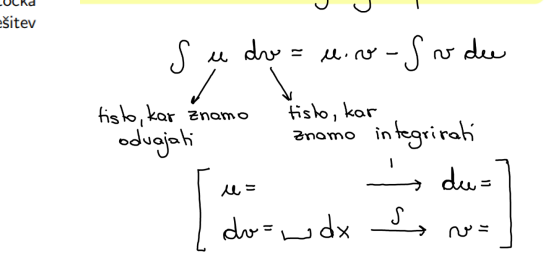 očka
ešitev
∫ u dv = u·v - ∫ v du
tisto, kar znamo
odvajati
tisto, kar
znamo integrirati
u= ' → du=
dv= ⎵ dx ∫ → v=